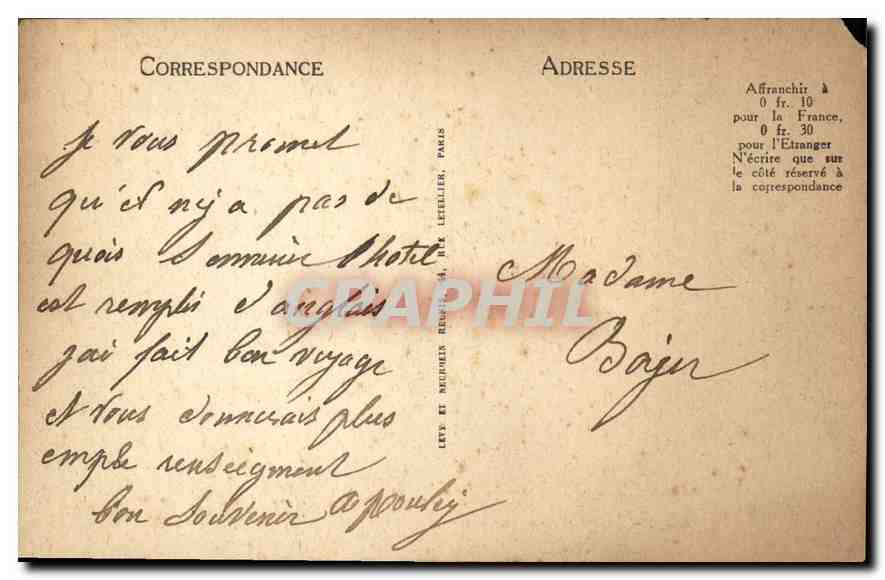 CORRESPONDANCE
ADRESSE
Affranchir à
0 fr. 10
pour la France,
0 fr. 30
pour l'Etranger
N'écrire que sur
le côté réservé à
la correspondance
Je vous promet
qu'il n'y a pas de
quois s'ennuier l'hotel
est remplis d'anglais
j'ai fait bon voyage
et vous donnerais plus
emple renseigment
bon souvenir
LEVY ET NEURDEIN REUNIS, 44, RUE LETELLIER, PARIS
Madame
CPAPHIL